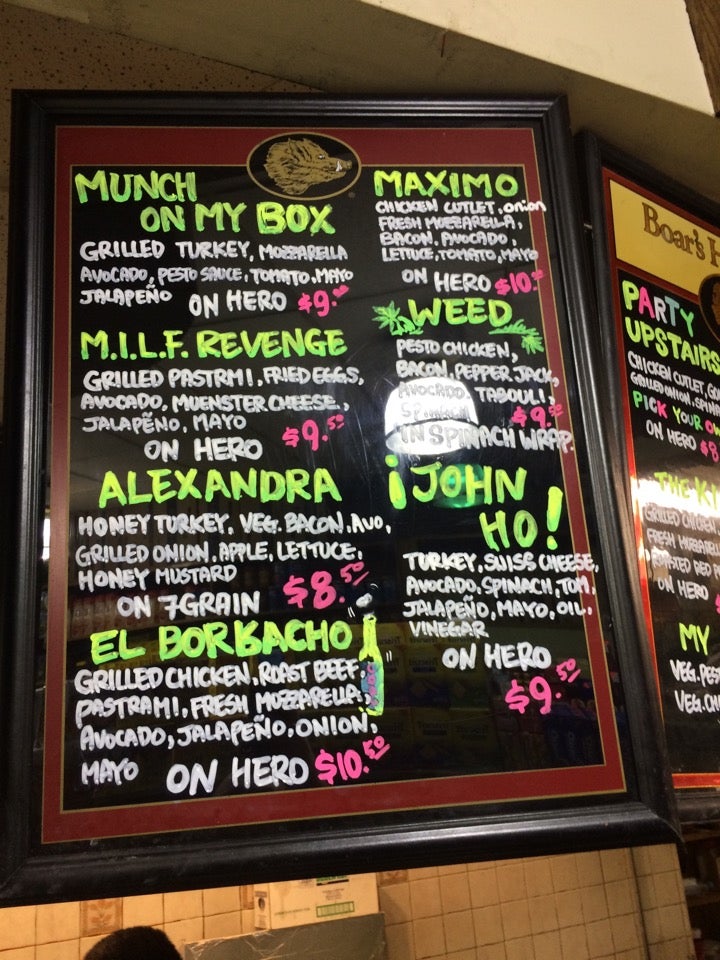 MUNCH
ON MY BOX
GRILLED TURKEY, MOZZARELLA
AVOCADO, PESTO SAUCE, TOMATO, MAYO
JALAPEÑO ON HERO $9.
M.I.L.F. REVENGE
GRILLED PASTRMI, FRIED EGGS,
AVOCADO, MUENSTER CHEESE,
JALAPEÑO, MAYO
ON HERO $9.50
ALEXANDRA
HONEY TURKEY, VEG. BACON, AVO,
GRILLED ONION, APPLE, LETTUCE,
HONEY MUSTARD
ON 7GRAIN $8.50
EL BORRACHO
GRILLED CHICKEN, ROAST BEEF,
PASTRAMI, FRESH MOZZARELLA,
AVOCADO, JALAPEÑO, ONION,
MAYO ON HERO $10.50
MAXIMO
CHICKEN CUTLET, onion
FRESH MOZZARELLA,
BACON, AVOCADO,
LETTUCE, TOMATO, MAYO
ON HERO $10.
WEED
PESTO CHICKEN,
BACON, PEPPER JACK,
AVOCADO, TABOULI,
SPINACH $9.50
IN SPINACH WRAP.
¡JOHN
HO!
TURKEY, SUISS CHEESE,
AVOCADO, SPINACH, TOM,
JALAPEÑO, MAYO, OIL,
VINEGAR
ON HERO
$9.50
Boar's
PARTY
UPSTAIRS
CHICKEN CUTLET,
GRILLED ONION,
PICK YOUR
ON HERO $8
THE
GRILLED
FRESH
ROASTED RED
ON HERO
MY
VEG.
VEG.